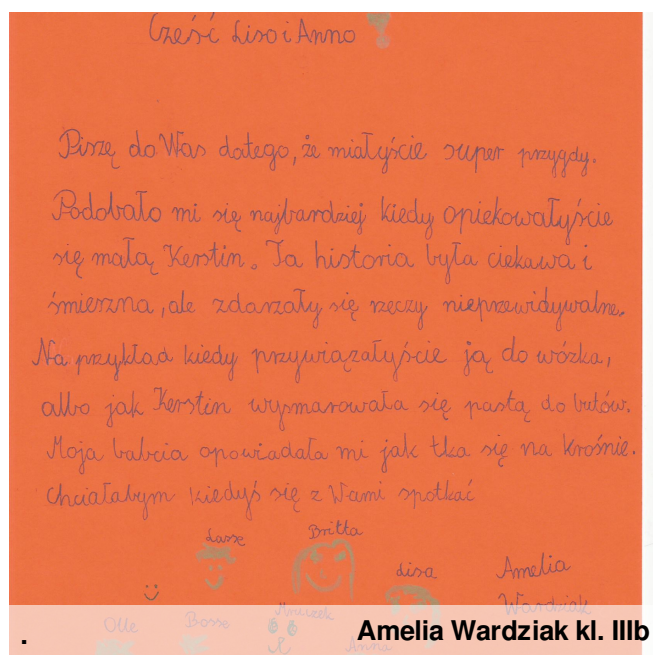 Cześć Liso i Anno!
Piszę do Was datego, że miałyście super przygdy.
Podobało mi się najbardziej kiedy opiekowałyście
się małą Kerstin. Ta historia była ciekawa i
śmieszna, ale zdarzały się rzeczy nieprzewidywalne.
Na przykład kiedy przywiązałyście ją do wózka,
albo jak Kerstin wysmarowała się pastą do butów.
Moja babcia opowiadała mi jak tka się na krośnie.
Chciałabym kiedyś się z Wami spotkać
Lasse Britta
Lisa Amelia
Wardziak
Olle Bosse Mruczek Anna
. Amelia Wardziak kl. IIIb